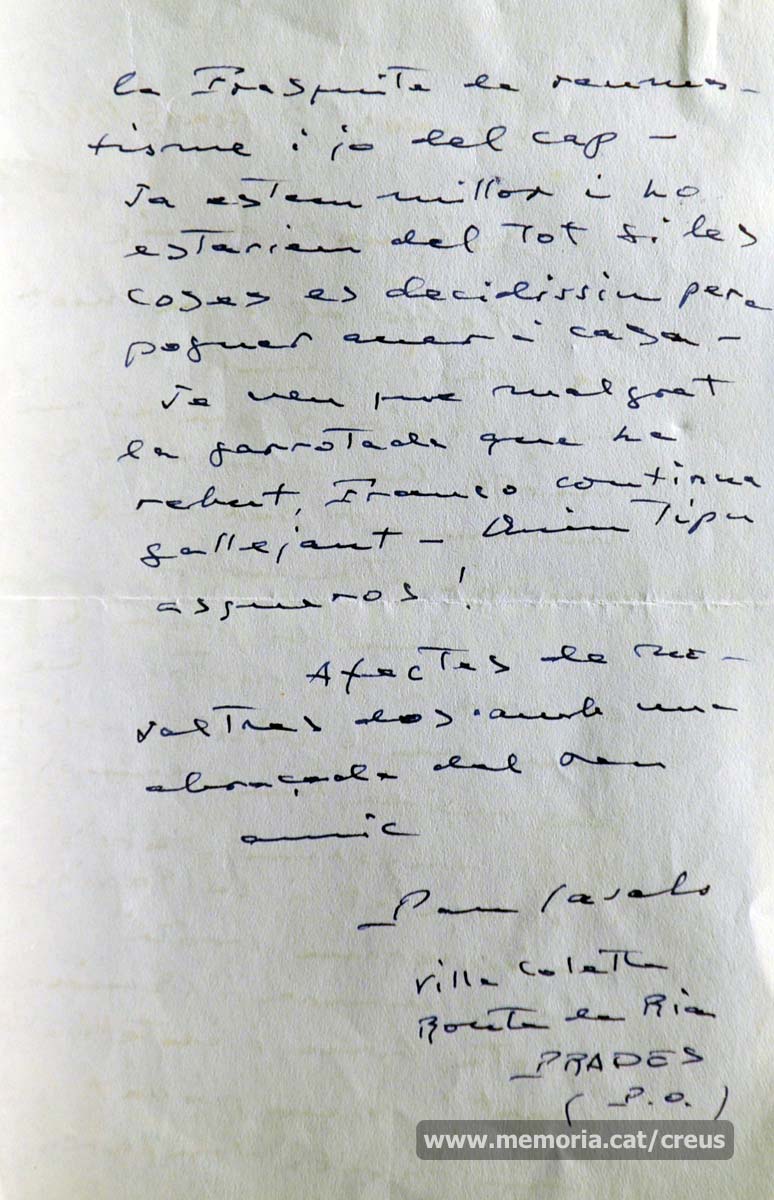 la Frasquita de reuma-
tisme i jo del cap -
Ja estem millor i ho
estariem del tot si les
coses es decidissin pera
poguer anar a casa -
Ja veu que malgrat
la garrotada que ha
rebut, Franco continua
gallejant - Quin Tipu
asqueros!
Afectes de no-
saltres dos amb una
abraçada del seu
amic
Pau Casals
Villa Colette
Route de Ria
PRADES
(P.O.)
www.memoria.cat/creus